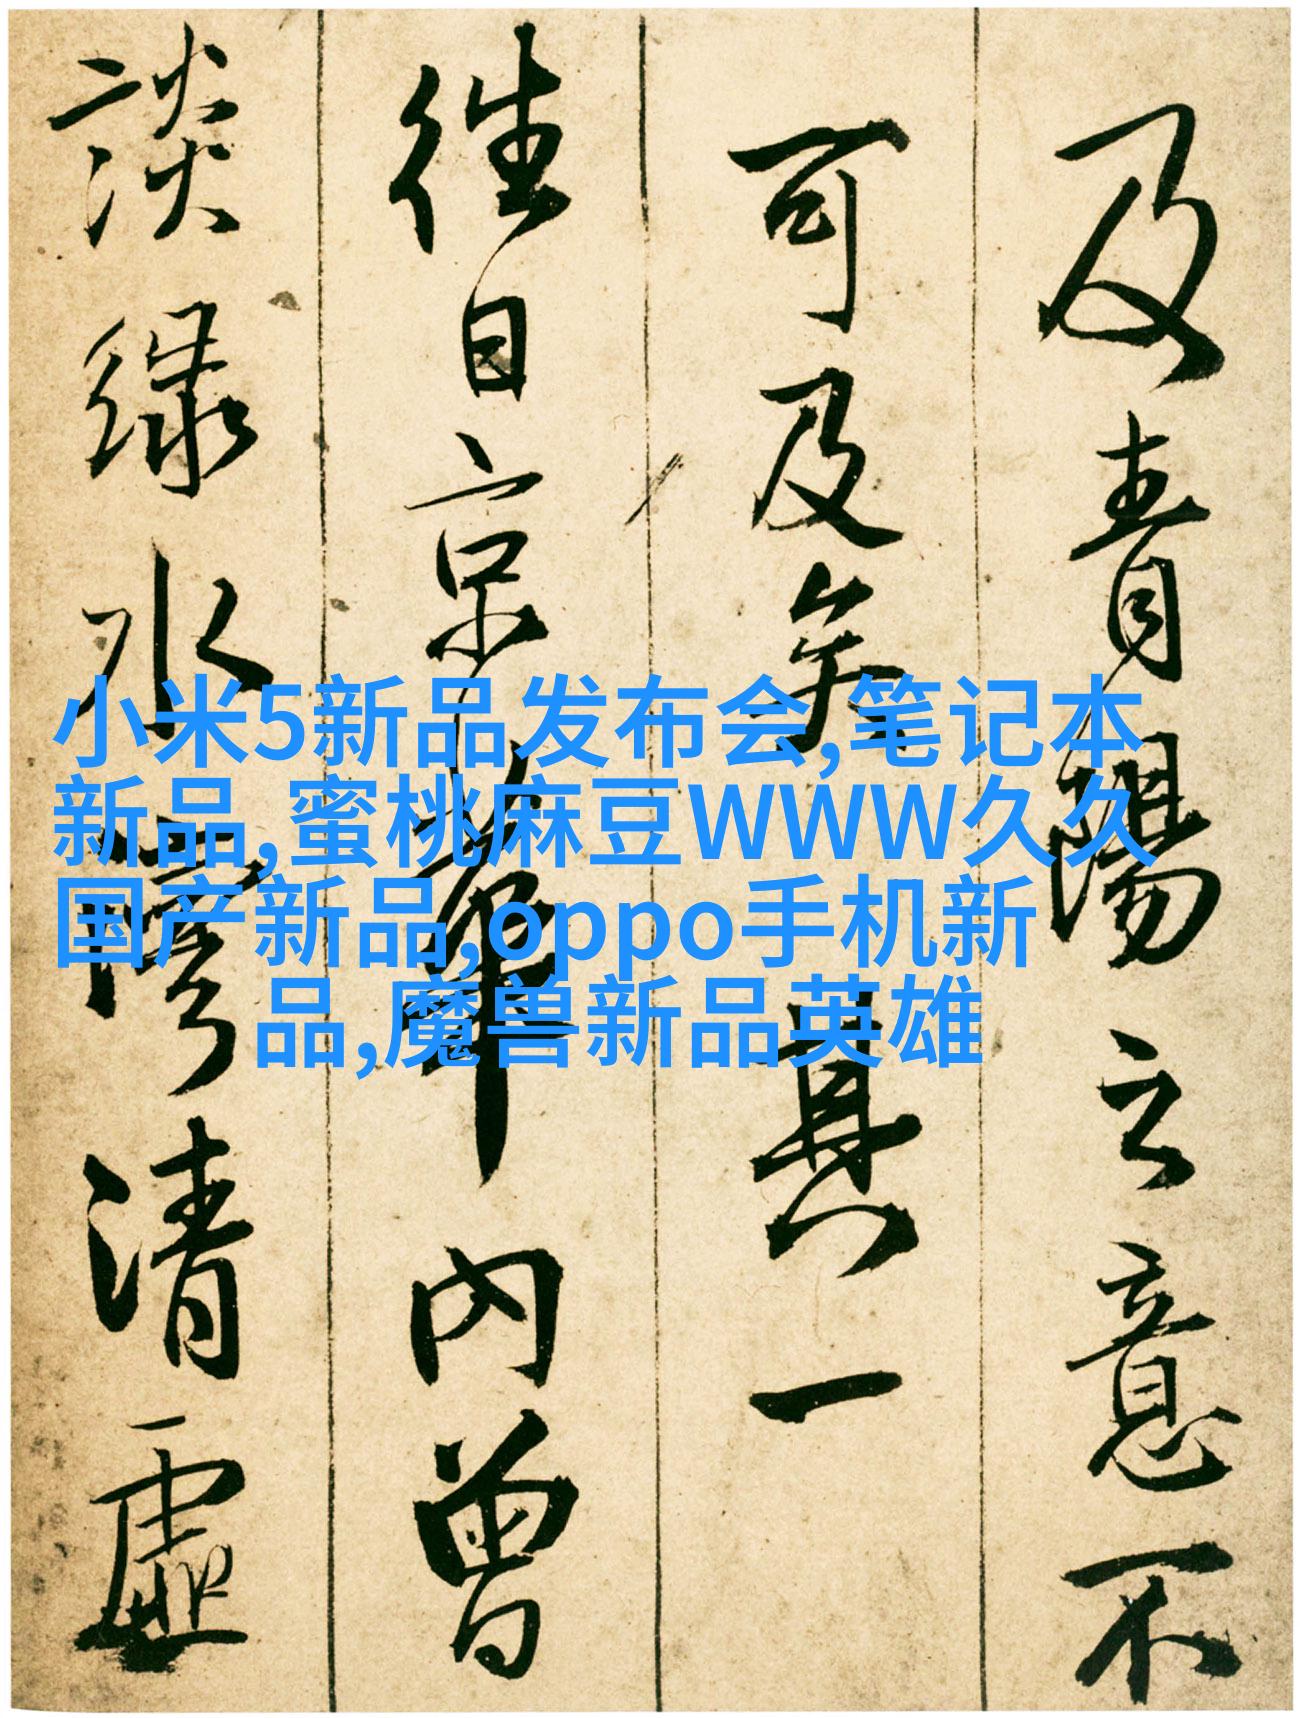 及青陽立意不
可及矣真一
往日京華内曾
談緑水灣清虛
小米5新品发布会,笔记本
新品,蜜桃麻豆WWW久久
国产新品,oppo手机新
品,魔兽新品英雄